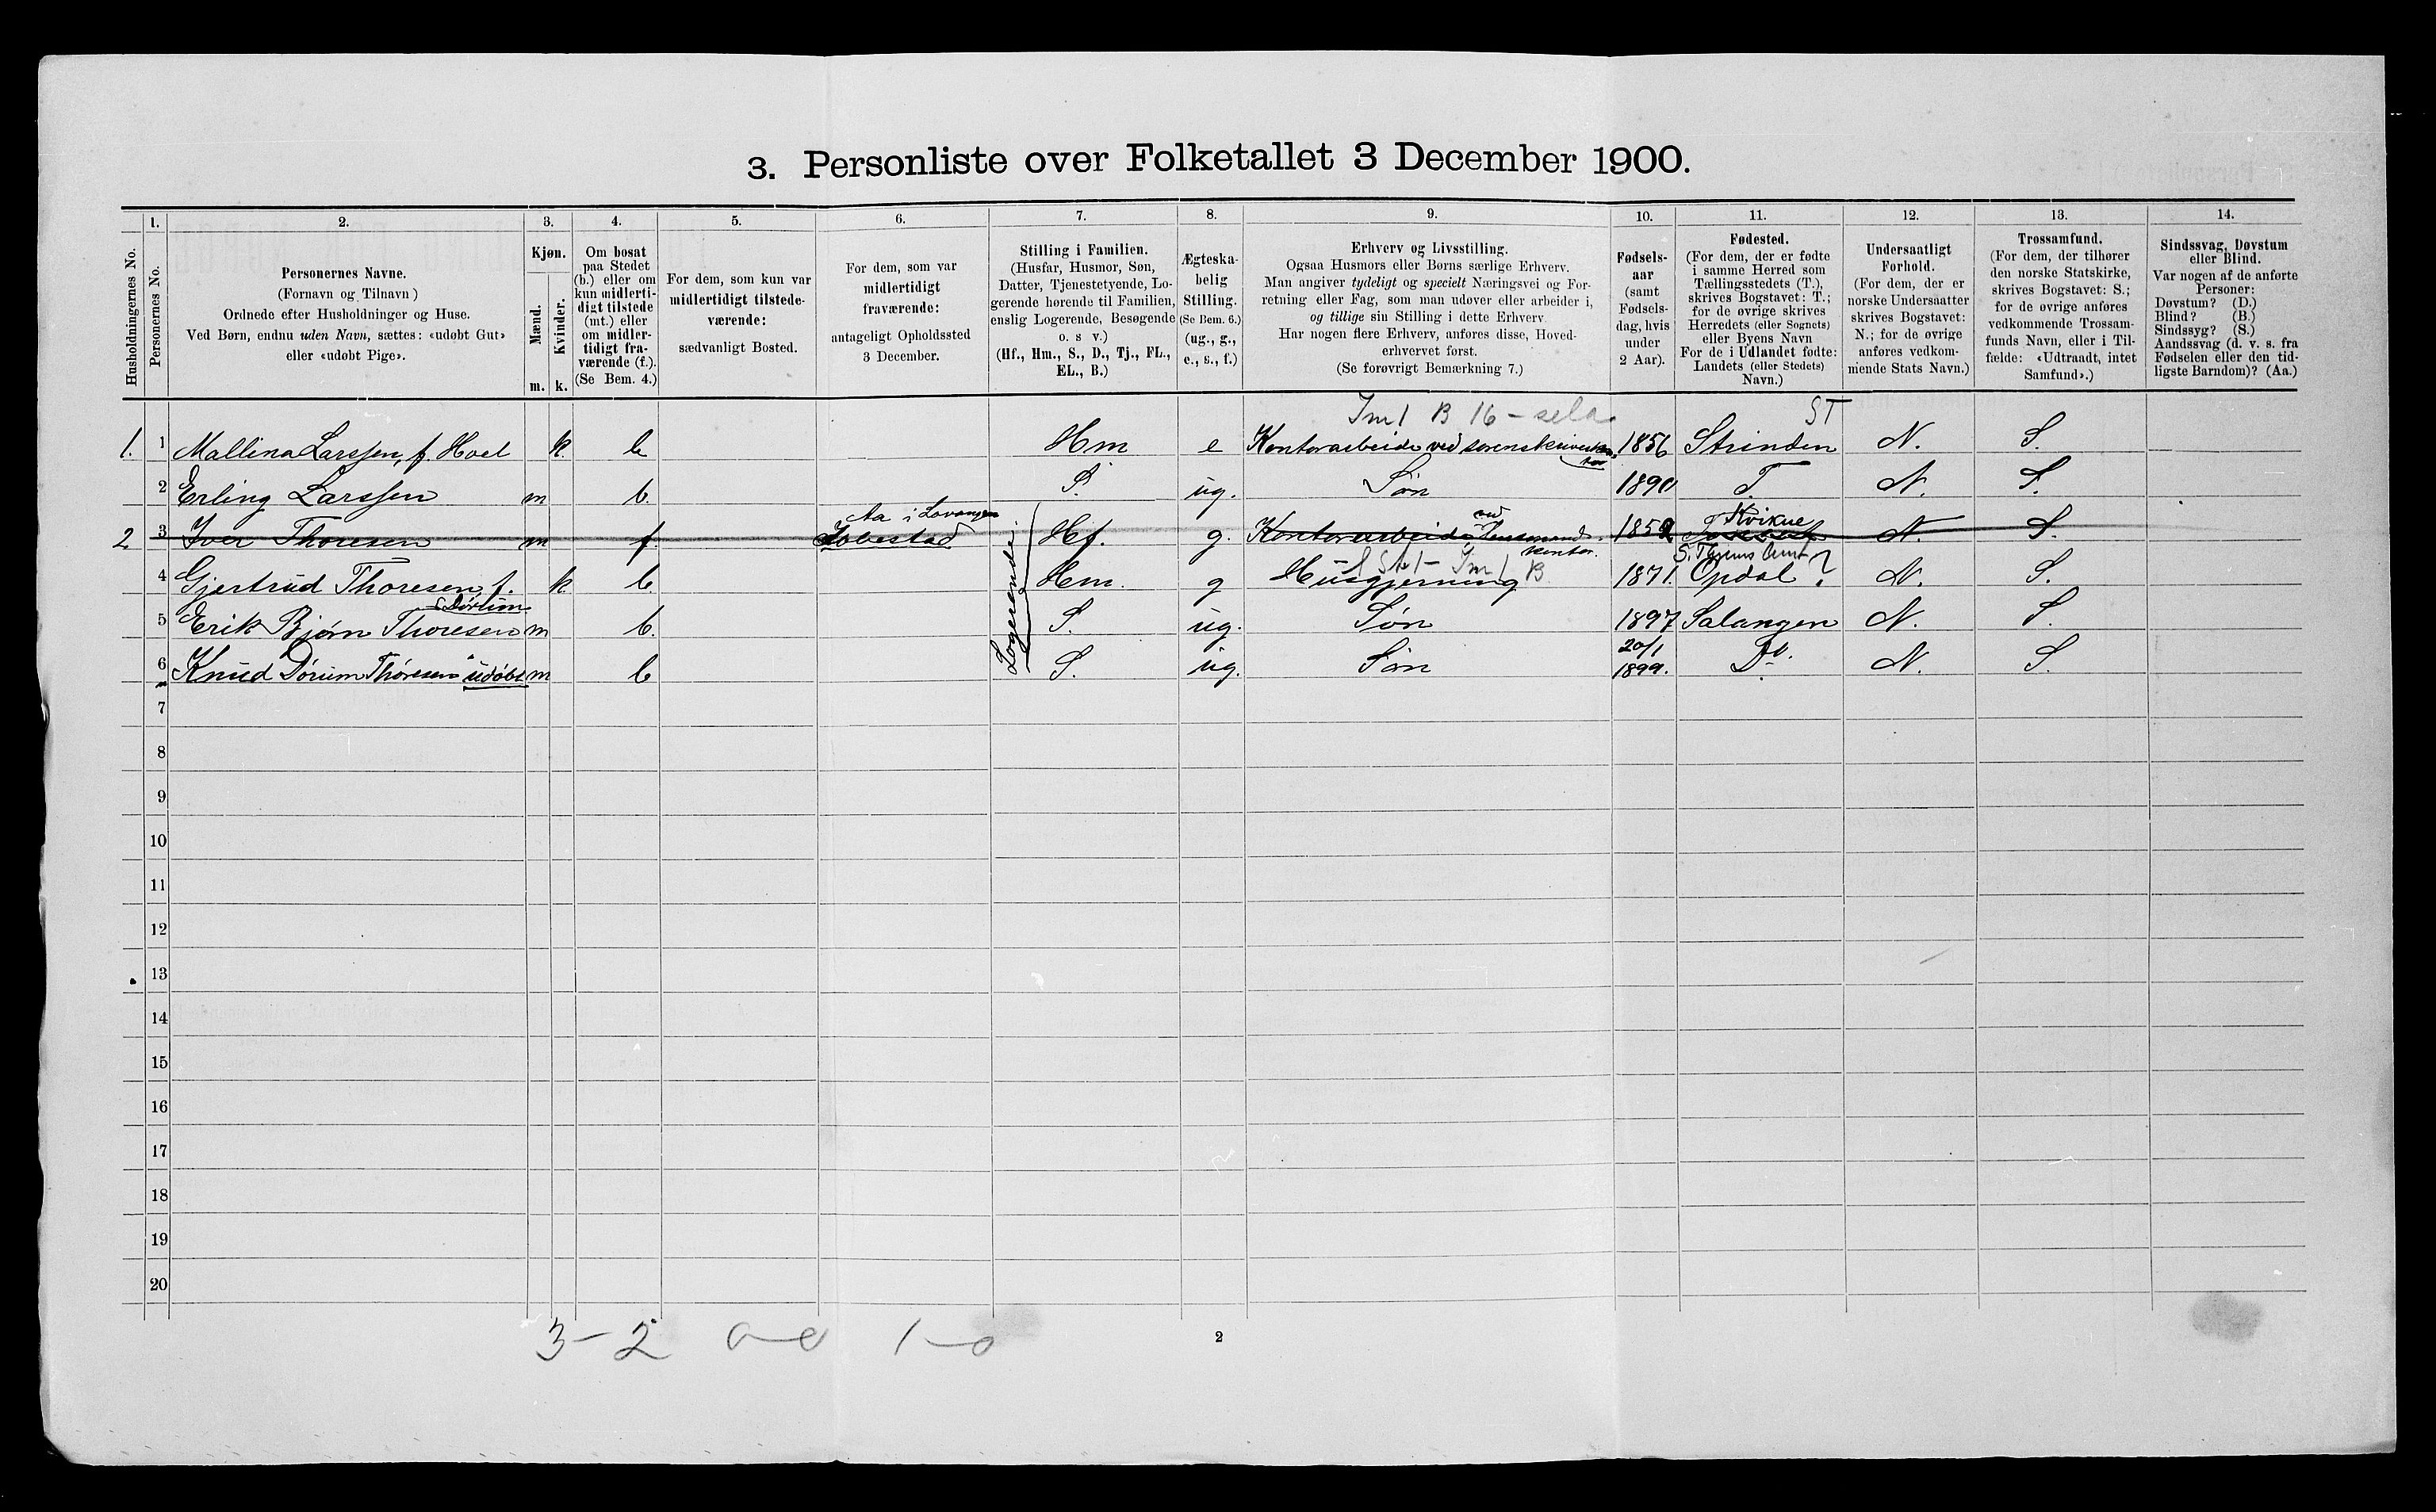 3. Personliste over Folketallet 3 December 1900.
Husholdningernes No.
1.
Personernes No.
2.
Personernes Navne.
(Fornavn og Tilnavn)
Ordnede efter Husholdninger og Huse.
Ved Børn, endnu uden Navn, sættes: «udøbt Gut»
eller «udøbt Pige».
3.
Kjøn.
Mænd.
Kvinder.
m. k.
4.
Om bosat
paa Stedet
(b.) eller om
kun midlerti-
digt tilstede
(mt.) eller
om midler-
tidigt fra-
værende (f.).
(Se Bem. 4.)
5.
For dem, som kun var
midlertidigt tilstede-
værende:
sædvanligt Bosted.
6.
For dem, som var
midlertidigt
fraværende:
antageligt Opholdssted
3 December.
7.
Stilling i Familien.
(Husfar, Husmor, Søn,
Datter, Tjenestetyende, Lo-
gerende hørende til Familien,
enslig Logerende, Besøgende
o. s v.)
(Hf., Hm., S., D., Tj., FL.,
EL., B.)
8.
Ægteska-
belig
Stilling.
(Se Bem. 6.)
(ug., g.,
e., s., f.)
9.
Erhverv og Livsstilling.
Ogsaa Husmors eller Børns særlige Erhverv.
Man angiver tydeligt og specielt Næringsvei og For-
retning eller Fag, som man udøver eller arbeider i,
og tillige sin Stilling i dette Erhverv.
Har nogen flere Erhverv, anføres disse, Hoved-
erhvervet først.
(Se forøvrigt Bemærkning 7.)
10.
Fødsels-
aar
(samt
Fødsels-
dag, hvis
under
2 Aar).
11.
Fødested.
(For dem, der er fødte
i samme Herred som
Tællingsstedets (T.),
skrives Bogstavet: T.;
for de øvrige skrives
Herredets (eller Sognets)
eller Byens Navn
For de i Udlandet fødte:
Landets (eller Stedets)
Navn.)
12.
Undersaatligt
Forhold.
(For dem, der er
norske Undersaatter
skrives Bogstavet:
N.; for de øvrige
anføres vedkom-
mende Stats Navn.)
13.
Trossamfund.
(For dem, der tilhører
den norske Statskirke,
skrives Bogstavet: S.;
for de øvrige anføres
vedkommende Trossam-
funds Navn, eller i Til-
fælde: «Udtraadt, intet
Samfund».)
14.
Sindssvag, Døvstum
eller Blind.
Var nogen af de anførte
Personer:
Døvstum? (D.)
Blind? (B.)
Sindssyg? (S.)
Aandssvag (d. v. s. fra
Fødselen eller den tid-
ligste Barndom)? (Aa.)
B 16 ST
1. 1 Mallina Larssen, f. Hoel k b Hm e Kontorarbeide ved sorenskriverkon-tor 1856 Strinden N. S.
2 Erling Larssen m b. S. ug. Søn 1890 T. N. S.
Aa i Lavangen ved Kvikne
2 3 Iver Thoresen m f. Ibestad Hf. g. Kontorarbeide Lensmands-kontor. N. S.
4 Gjertrud Thoresen, f. Dørum k b Hm. g Husgjerning B 1871. Opdal? N. S.
5 Erik Bjørn Thoresen m b. S. ug. Søn 1897 Salangen N. S.
20/1
6 Knud Dørum Thoresen udøbt m b S. ug. Søn 1899. Do. N. S.
Logerende
7
8
9
10
11
12
13
14
15
16
17
18
19
20
3-2 0-0 1-0
2